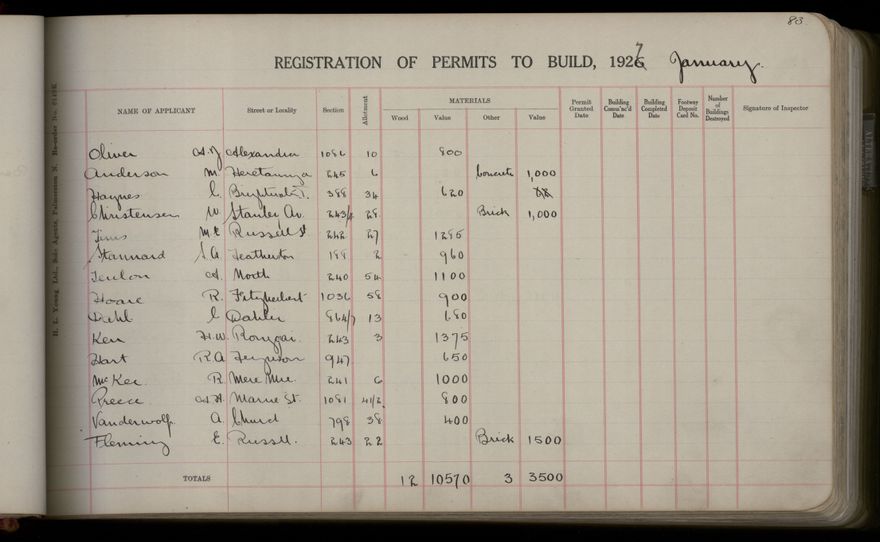 83
REGISTRATION OF PERMITS TO BUILD, 1927 January.
NAME OF APPLICANT Street or Locality Section Allotment MATERIALS Permit Granted Date Building Comm'nc'd Date Building Completed Date Footway Deposit Card No. Number of Buildings Destroyed Signature of Inspector
Wood Value Other Value
Oliver Alexandra 1086 10 800
Anderson M Heretaunga 245 6 Concrete 1,000
Haynes C. 388 34 620
Christensen W. Stanley Av. 243/4 28 Brick 1,000
Tims Russell St 242 27 1285
Stannard S.A. Featherston 188 2 960
A. North 240 54 1100
Hoare R. Fitzherbert 1036 58 900
Diehl C Dahlia 864/7 13 680
Kerr H.W. Rongopai. 243 3 1375
Hart R.A. Ferguson 947 650
McKee. R. Mere Mere. 241 6 1000
Preece A.H. Marne St. 1081 41/2. 800
Vanderwolf. A. Church 798 38 400
Fleming E. Russell. 243 22 Brick 1500
TOTALS 12 10570 3 3500
H. L. Young Ltd., Sole Agents, Palmerston N. Re-order No.